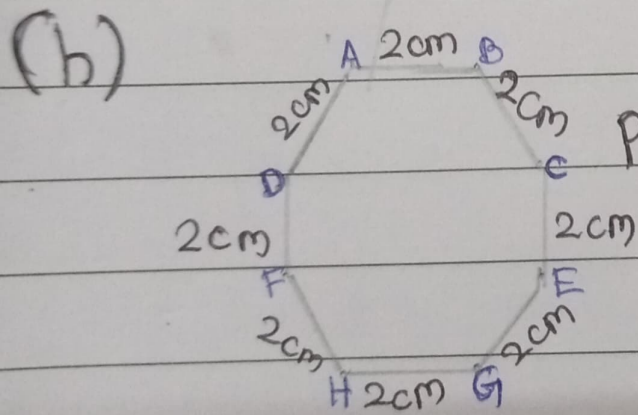 (b)
A 2cm B
2cm
2cm
P
D
C
2cm
2cm
F
E
2cm
2cm
H 2cm G